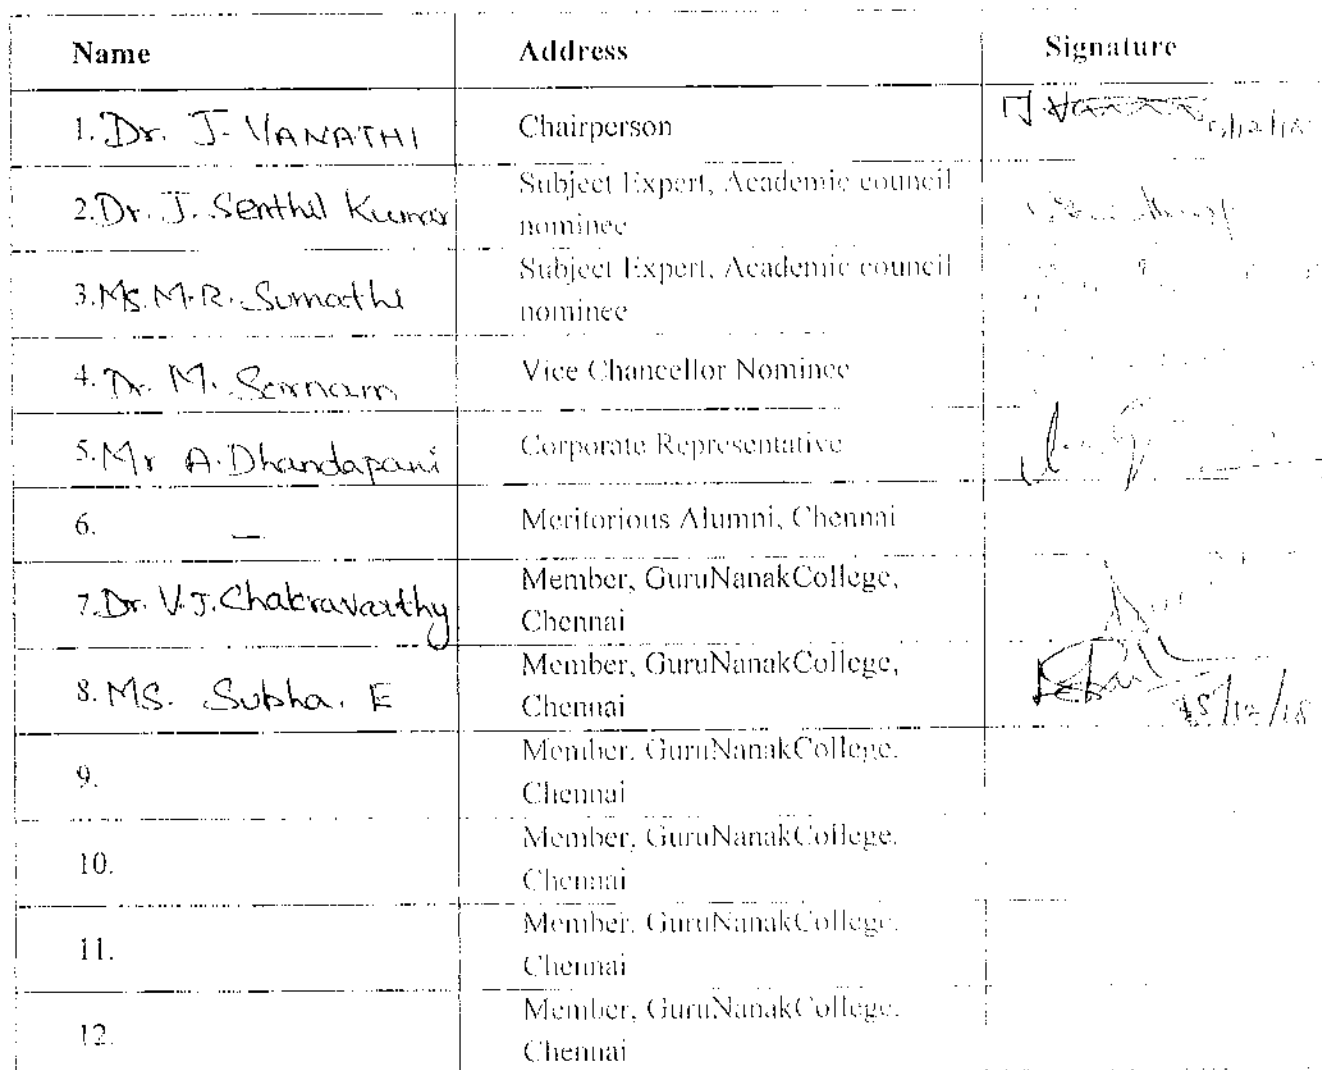 Name Address Signature
1. Dr. J. VANATHI Chairperson
2. Dr. J. Senthil Kumar Subject Expert, Academic council
nominee
3. Ms. M.R. Sumathi Subject Expert, Academic council
nominee
4. Dr. M. Vice Chancellor Nominee
5. Mr A. Dhandapani Corporate Representative
6. — Meritorious Alumni, Chennai
7. Dr. V.J. Chakravarthy Member, GuruNanakCollege,
Chennai
8. MS. Subha. E Member, GuruNanakCollege,
Chennai
9. Member, GuruNanakCollege,
Chennai
10. Member, GuruNanakCollege,
Chennai
11. Member, GuruNanakCollege,
Chennai
12. Member, GuruNanakCollege,
Chennai